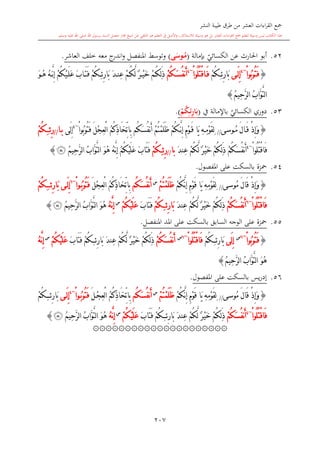 جمع القراءات العشر من طرق طيبة النشر
٥٢. أبو الحارث عن الكسائيّ بإمالة (مُوسَى) وتوسط المنفصل واندرج معه خلف العاشر.
﴿ فَتُوبُوٓاْ إِلَىٰ بَارِئِكُمۡ فَٱقۡتُلُوٓاْ أَنفُسَكُمۡ ذَٰلِكُمۡ خَيۡرٞ لَّكُمۡ عِندَ بَارِئِكُمۡ فَتَابَ عَلَيۡكُمۡۚ إِنَّهُۥ هُوَ
ٱلتَّوَّابُ ٱلرَّحِيمُ ﴾
٥٣. دوري الكسائيّ بالإمالة في (بَارِئِكُمۡ).
﴿ وَإِذۡ قَالَ مُوسَىٰ لِقَوۡمِهِۦ يَٰقَوۡمِ إِنَّكُمۡ ظَلَمۡتُمۡ أَنفُسَكُم بِٱتِّخَاذِكُمُ ٱلۡعِجۡلَ فَتُوبُوٓاْ إِلَىٰ بَارِئِكُمۡ
فَٱقۡتُلُوٓاْ أَنفُسَكُمۡ ذَٰلِكُمۡ خَيۡرٞ لَّكُمۡ عِندَ بَارِئِكُمۡ فَتَابَ عَلَيۡكُمۡۚ إِنَّهُۥ هُوَ ٱلتَّوَّابُ ٱلرَّحِيمُ ﴾
٥٤. حمزة بالسكت على المفصول.
﴿ وَإِذۡ قَالَ مُوسَىٰ لِقَوۡمِهِۦ يَٰقَوۡمِ إِنَّكُمۡ ظَلَمۡتُمۡ أَنفُسَكُم بِٱتِّخَاذِكُمُ ٱلۡعِجۡلَ فَتُوبُوٓاْ إِلَىٰ بَارِئِكُمۡ
فَٱقۡتُلُوٓاْ أَنفُسَكُمۡ ذَٰلِكُمۡ خَيۡرٞ لَّكُمۡ عِندَ بَارِئِكُمۡ فَتَابَ عَلَيۡكُمۡۚ إِنَّهُۥ هُوَ ٱلتَّوَّابُ ٱلرَّحِيمُ ﴾
٥٥. حمزة على الوجه السابق بالسكت على المد المنفصل.
﴿ فَتُوبُوٓاْ إِلَىٰ بَارِئِكُمۡ فَٱقۡتُلُوٓاْ أَنفُسَكُمۡ ذَٰلِكُمۡ خَيۡرٞ لَّكُمۡ عِندَ بَارِئِكُمۡ فَتَابَ عَلَيۡكُمۡۚ إِنَّهُۥ
هُوَ ٱلتَّوَّابُ ٱلرَّحِيمُ ﴾
٥٦. إدريس بالسكت على المفصول.
﴿ وَإِذۡ قَالَ مُوسَىٰ لِقَوۡمِهِۦ يَٰقَوۡمِ إِنَّكُمۡ ظَلَمۡتُمۡ أَنفُسَكُم بِٱتِّخَاذِكُمُ ٱلۡعِجۡلَ فَتُوبُوٓاْ إِلَىٰ بَارِئِكُمۡ
فَٱقۡتُلُوٓاْ أَنفُسَكُمۡ ذَٰلِكُمۡ خَيۡرٞ لَّكُمۡ عِندَ بَارِئِكُمۡ فَتَابَ عَلَيۡكُمۡۚ إِنَّهُۥ هُوَ ٱلتَّوَّابُ ٱلرَّحِيمُ ﴾
٢٠٧